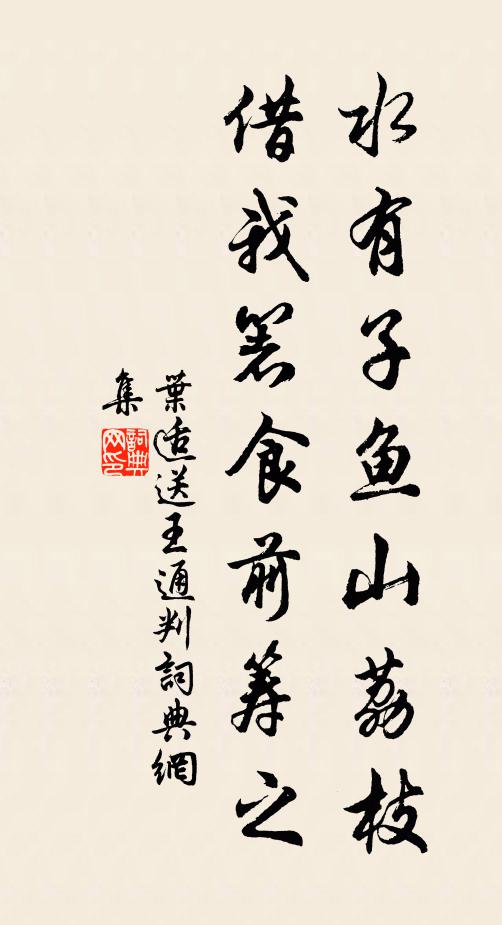 水有子鱼山荔枝
借我箸食前筹之
葉适送王通判詞典網
集
詞典网印